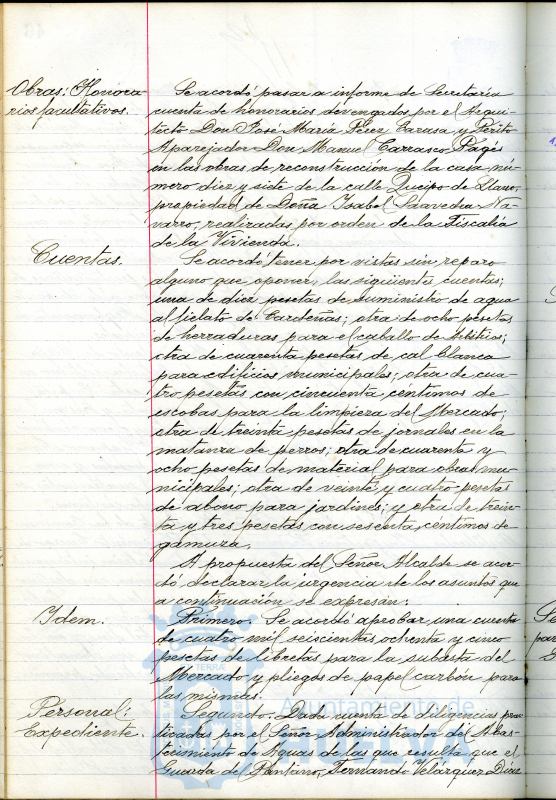 Obras: Honora-
rios facultativos.
Se acordó pasar a informe de Secretaría
cuenta de honorarios devengados por el Arqui-
tecto Don José María Pérez Carasa y Perito
Aparejador Don Manuel Carrasco Pagés
en las obras de reconstrucción de la casa nú-
mero diez y siete de la calle Queipo de Llano,
propiedad de Doña Isabel Saavedra Na-
varro, realizadas por orden de la Fiscalía
de la Vivienda.
Cuentas.
Se acordó tener por vistas sin reparo
alguno que oponer, las siguientes cuentas;
una de diez pesetas de suministro de agua
al de Cardeñas; otra de ocho pesetas
de herraduras para el caballo de Arbitrios;
otra de cuarenta pesetas de cal blanca
para edificios municipales; otra de cua-
tro pesetas con cincuenta céntimos de
escobas para la limpieza del Mercado;
otra de treinta pesetas de jornales en la
matanza de perros; otra de cuarenta y
ocho pesetas de material para obras mu-
nicipales; otra de veinte y cuatro pesetas
de abono para jardines; y otra de trein-
ta y tres pesetas con sesenta céntimos de
gamuza.
A propuesta del Señor Alcalde se acor-
dó declarar la urgencia de los asuntos que
a continuación se expresan:
Idem.
Primero. Se acordó aprobar una cuenta
de cuatro mil seiscientas ochenta y cinco
pesetas de libretas para la subasta del
Mercado y pliegos de papel carbón para
las mismas.
Personal:
Expediente.
Segundo. Dada cuenta de diligencias prac-
ticadas por el Señor Administrador del Abas-
tecimiento de Aguas de las que resulta que el
Guarda de Pantano, Fernando Velázquez Díaz
Ayuntamiento de
HUELVA